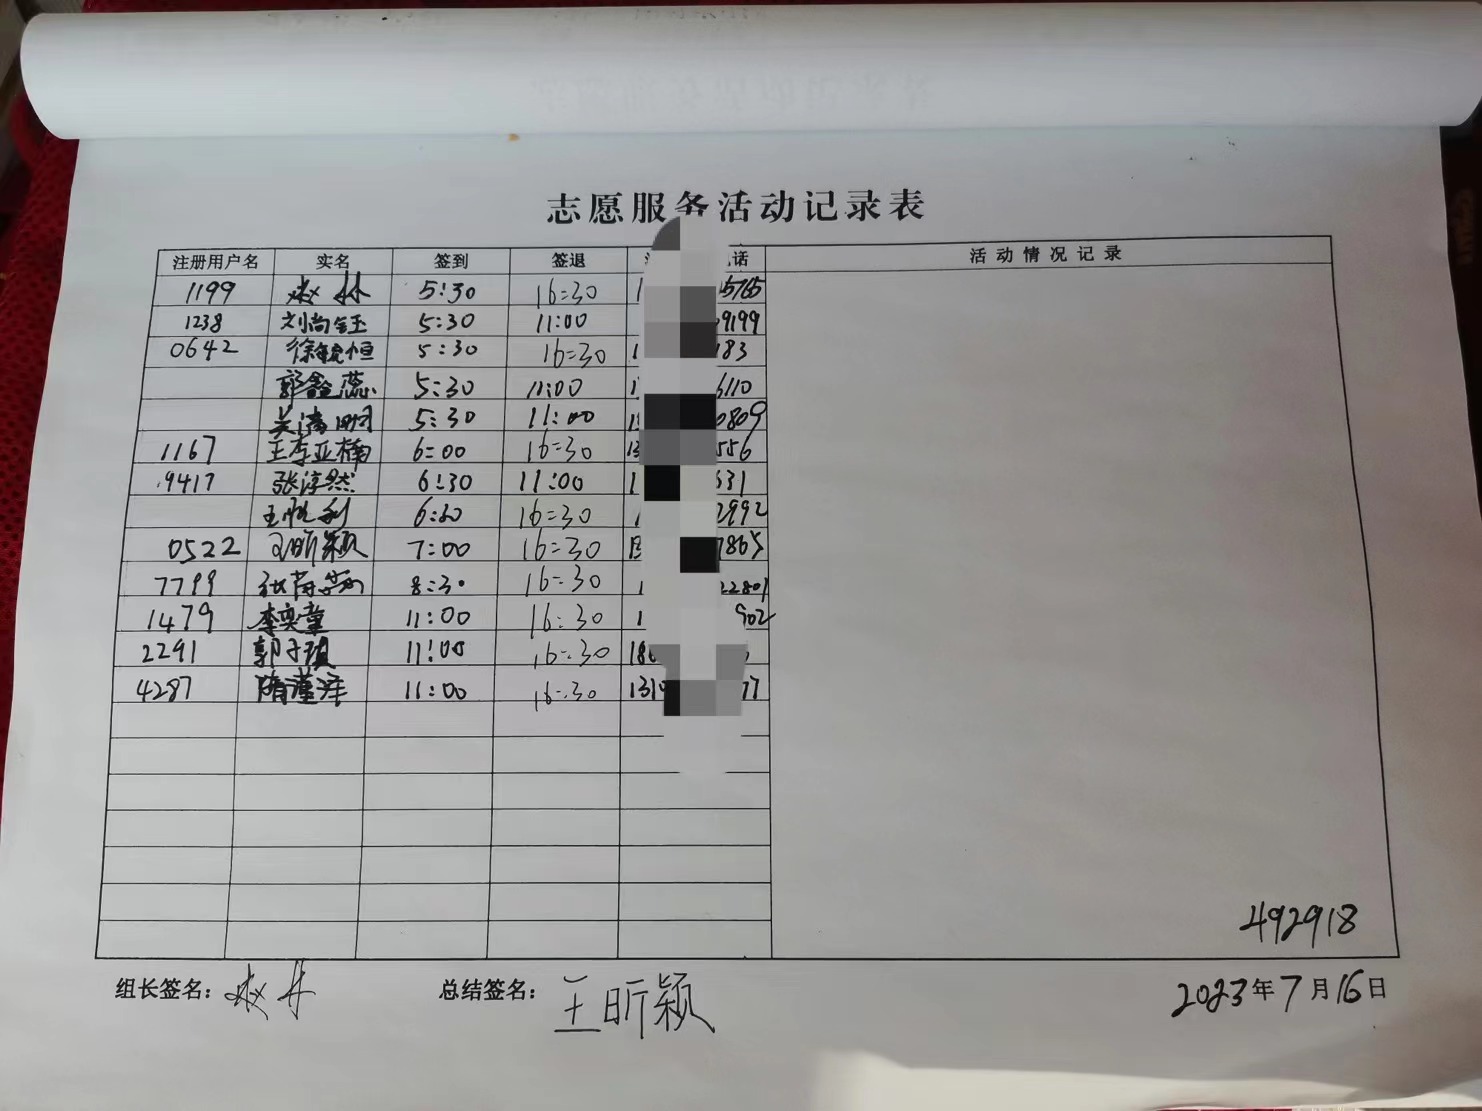 志愿服务活动记录表
注册用户名 实名 签到 签退 话 活动情况记录
1199 赵林 5:30 16:30 5765
1238 刘尚钰 5:30 11:00 9199
0642 徐毓恒 5:30 16:30 1 183
郭鑫蕊 5:30 11:00 1 6110
5:30 11:00 1 0809
1167 王李亚楠 6:00 16:30 13 556
9417 张淳然 6:30 11:00 1 631
王胜利 6:30 16:30 2992
0522 王昕颖 7:00 16:30 7865
7799 8:30 16:30 1 22801
1479 李奕萱 11:00 16:30 1 902
2291 郭子琪 11:00 16:30 18
4287 隋瀅泽 11:00 16:30 131 77
492918
组长签名：赵林 总结签名：王昕颖 2023年7月16日